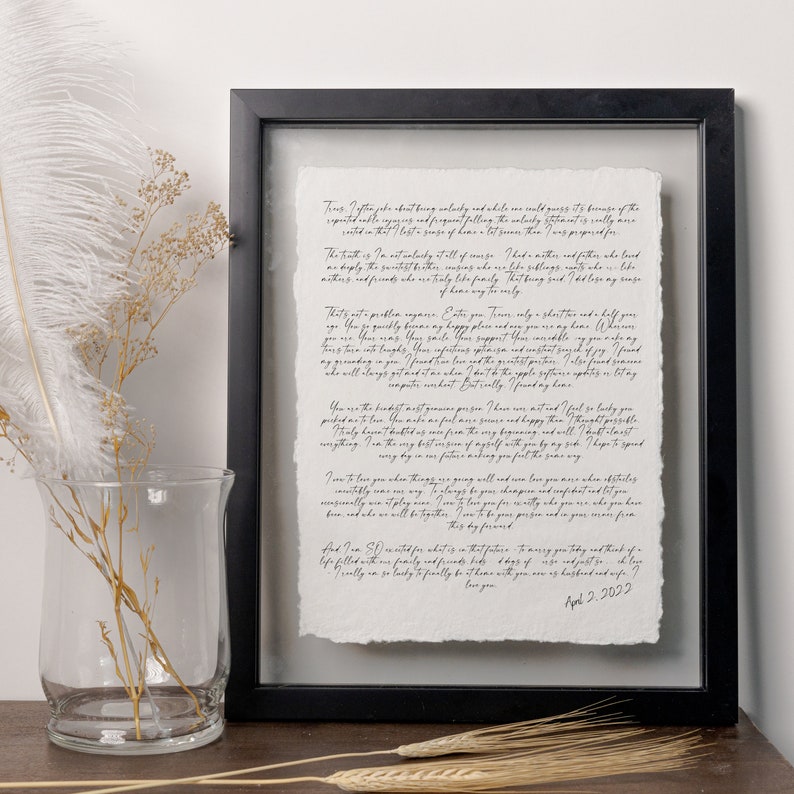 Trevs, I often joke about being unlucky and while one could guess it's because of the
repeated ankle injuries and frequent falling, the unlucky statement is really more
rooted in that I lost a sense of home a lot sooner than I was prepared for.
The truth is I'm not unlucky at all of course. I had a mother and father who loved
me deeply, the sweetest brother, cousins who are like siblings, aunts who are like
mothers, and friends who are truly like family. That being said, I did lose my sense
of home way too early.
That's not a problem anymore. Enter you, Trevor, only a short two and a half year
ago. You so quickly became my happy place and now you are my home. Wherever
you are. Your arms. Your smile. Your support. Your incredible way you make my
tears turn into laughs. Your infectious optimism and constant search of joy. I found
my grounding in you. I found true love and the greatest partner. I also found someone
who will always get mad at me when I don't do the apple software updates or let my
computer overheat. But really, I found my home.
You are the kindest, most genuine person I have ever met and I feel so lucky you
picked me to love. You make me feel more secure and happy than I thought possible.
I truly haven't doubted us once from the very beginning, and well, I doubt almost
everything. I am the very best version of myself with you by my side. I hope to spend
every day in our future making you feel the same way.
I vow to love you when things are going well and even love you more when obstacles
inevitably come our way. To always be your champion and confidant and let you
occasionally win at play nine. I vow to love you for exactly who you are, who you have
been, and who we will be together. I vow to be your person and in your corner from
this day forward.
And I am SO excited for what is in that future - to marry you today and think of a
life filled with our family and friends, kids d dogs of urse and just so eh love
- I really am so lucky to finally be at home with you, now as husband and wife. I
love you.
April 2, 2022